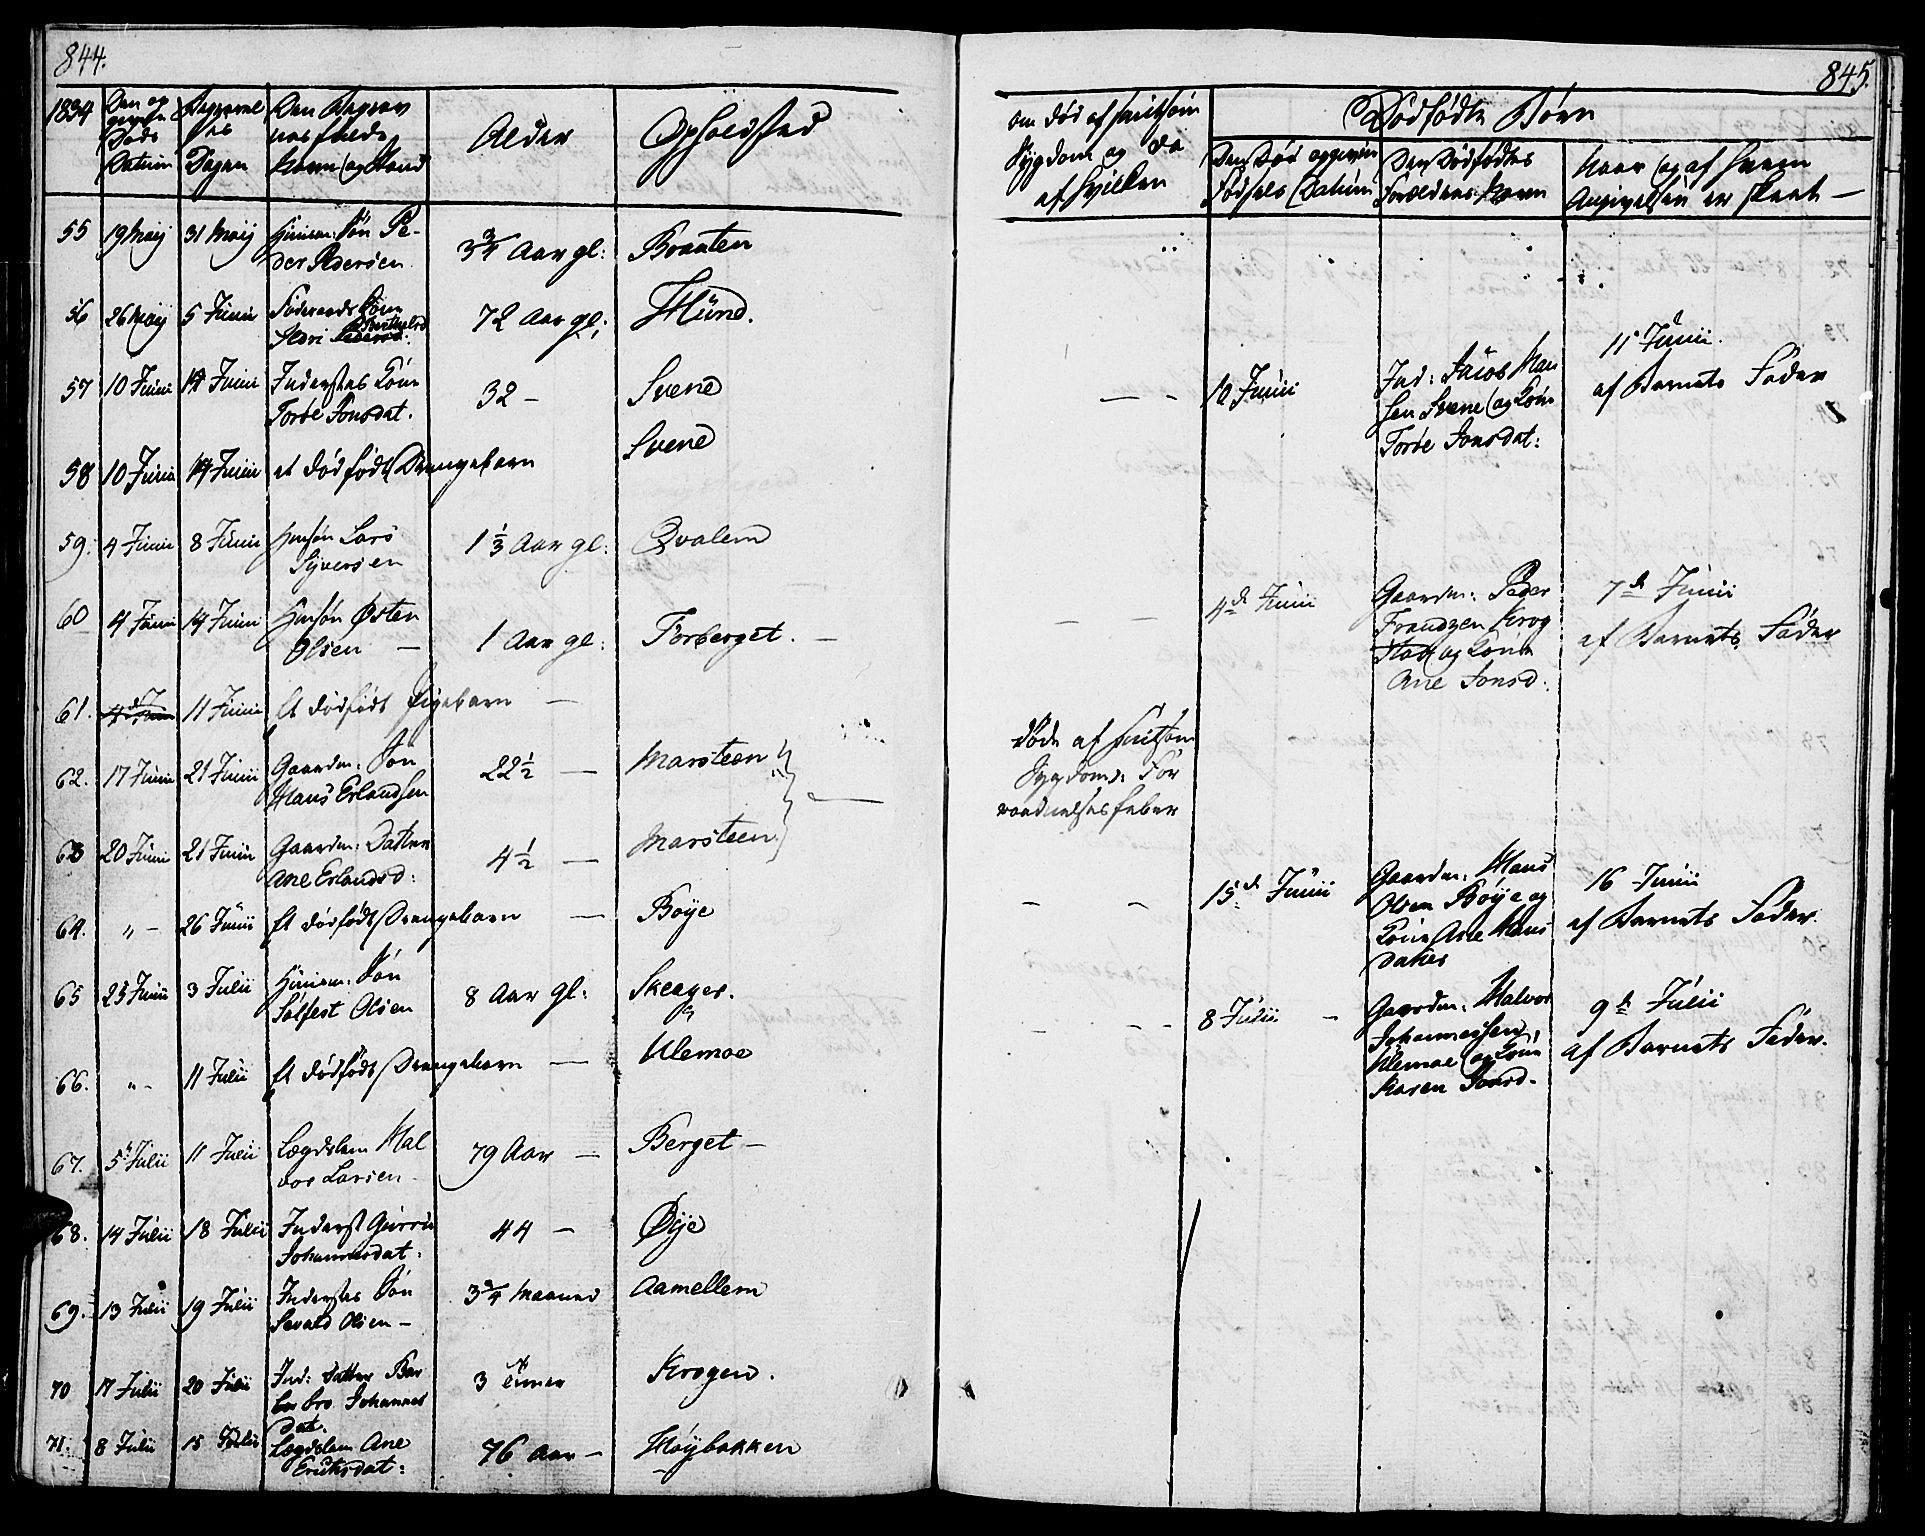 844.
1834
Den op
givne
Døds
Datum
Begravel
ses
Dagen
Den Begrav
nes fulde
Navn og Stand
Alder
Opholdsted
55 19 Maij 31 Maij Huusm: Søn Pe-
der Pedersen 3 3/4 Aar gl: Braaten
56 26 Maij 5 Junii Føderaads Kone
Kari Pedersd: 72 Aar gl: Hünd.
57 10 Junii 14 Junii Inderstes Kone
Torbe Jonsdat. 32 - Svene
58 10 Junii 14 Junii et dødfødt Drengebarn Svene
59. 4 Junii 8 Junii Huusm: Søn Lars
Syversen 1 1/3 Aar gl: Qvalem
60 4 Junii 14 Junii Østen
Olsen - 1 Aar gl: Torberget. -
61. 4d Junii 11 Junii Et dødfødt Pigebarn -
62. 17 Junii 21 Junii Gaardm: Søn
Hans Erlandsen 22 1/2 - Marsteen
63 20 Junii 21 Junii Gaardm: Datter
Ane Erlandsd: 4 1/2 - Marsteen
64. " - 26 Junii Et dødfødt Drengebarn - Böye
65 25 Junii 3 Julii Huusm: Søn
Solfest Olsen 8 Aar gl: Skeager.
66. " - 11 Julii Et dødfødt Drengebarn - Ulemoe
67. 5 Julii 11 Julii Lægdslem Hal
vor Larsen 79 Aar - Berget -
68. 14 Julii 18 Julii Inderst Gurru
Johannesdat. 44 - Øye
69. 13 Julii 19 Julii Inderstes Søn
Sevald Olsen - 3 3/4 Maaned Aamellem
70 17 Julii 20 Julii Ind: Datter Bar
bro Johannes
Dat. 3 Uger Krogen.
71. 8 Julii 15 Julii Lægdslem Ane
Eriksdat: 76 Aar - Høybakken
845.
om død af smitsom
Sygdom og da
af hvilken
Dødfødte Børn
Den Død opgivne
Fødsels Datum
Den Dødfødtes
Forældres Navn
Naar og af hvem
Angivelsen er skeet -
10 Junii
Ind: Jacob Han
sen Svene og Kone
Torbe Jonsdat:
11 Junii.
af Barnets Fader
4d Junii
Gaardm: Peder
Frandzen Krog
stad og Kone
Ane Jonsd:
7d Junii
af Barnets Fader
Døde af smitsom
Sygdom: For
raadnelsesfeber
15d Junii
Gaardm: Hans
Olsen Böye og
Kone Ane Hans
datter
16 Junii
af Barnets Fader.
8 Julii -
Gaardm: Halvor
Johannessen
Ulemoe og Kone
Karen Jonsd.
9d Julii
af Barnets Fader.